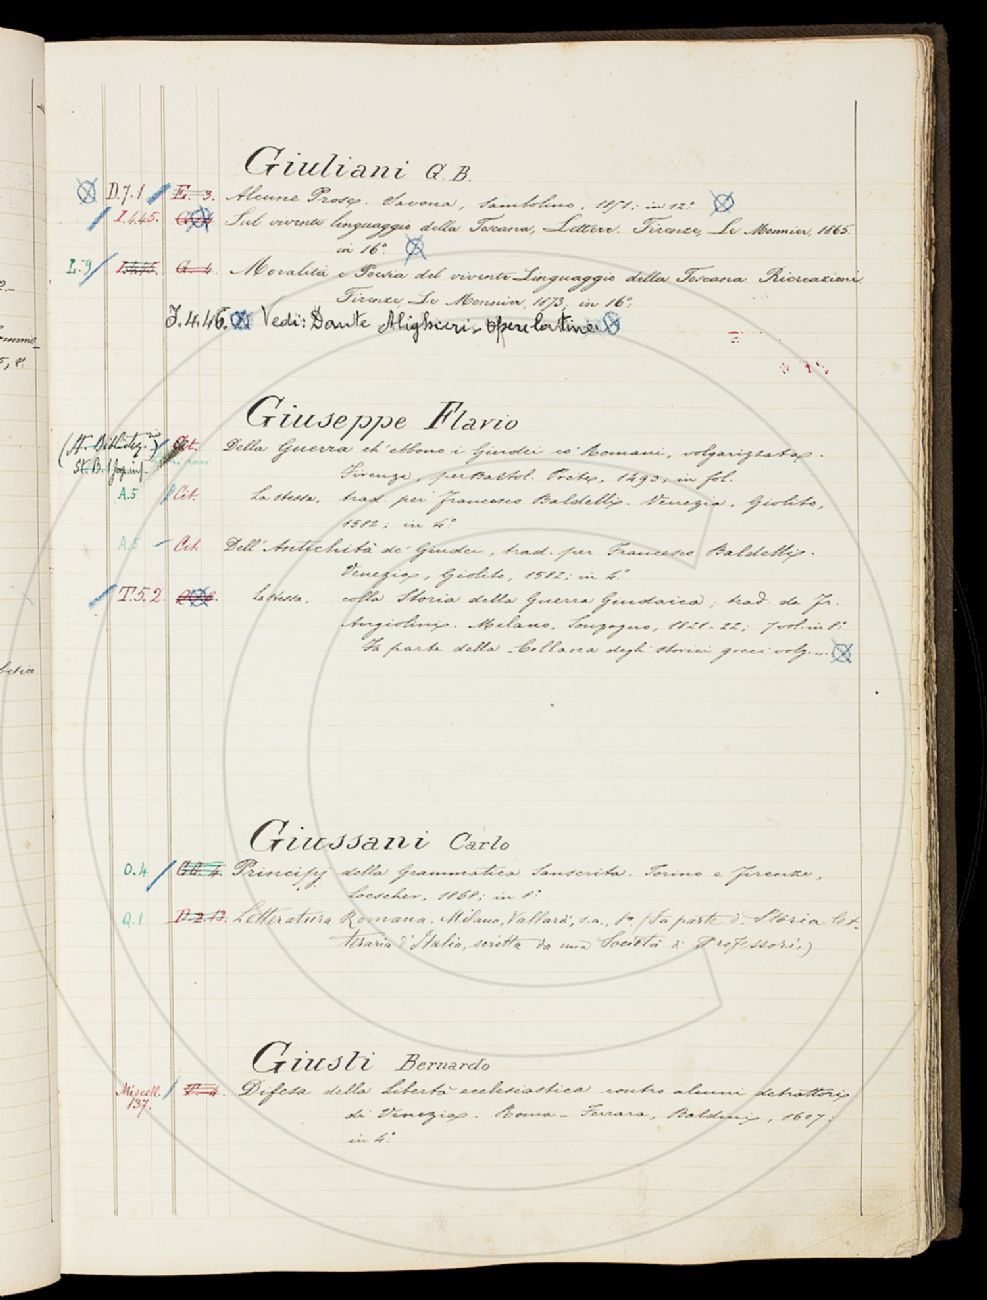 Giuliani G. B.
D.7.1 E. 3. Alcune Prose. Savona, Sambolino, 1871; in 12°
I.4.45. Sul vivente linguaggio della Toscana, Lettere. Firenze, Le Monnier, 1865
in 16°
L. 9 G. 4. Moralità e Poesia del vivente Linguaggio della Toscana Ricreazioni
Firenze Le Monnier, 1873, in 16°
I.4.46. Vedi: Dante Alighieri - opere latine
Giuseppe Flavio
Cit. Della Guerra ch'ebbono i Giudei co' Romani, volgarizzata.
Firenze, per Bartol. Pretex, 1493; in fol.
A.5 Cit. La stessa, trad. per Francesco Baldelli. Venezia, Giolito,
1582; in 4°
A.5 Cit. Dell'Antichità de' Giudei, trad. per Francesco Baldelli.
Venezia, Giolito, 1582; in 4°
T.5.2 La stessa. colla Storia della Guerra Giudaica; trad. da Fr.
Angiolini. Milano, Sonzogno, 1821-22; 7 vol. in 8°
Fa parte della Collana degli storici greci volg...
Giussani Carlo
O.4 Principj della Grammatica Sanscrita. Torino e Firenze,
Loescher, 1868; in 8°
Q.1 D. 2. 13. Letteratura Romana. Milano, Vallardi, s.a., 8° (Fa parte d. Storia Let-
teraria d'Italia, scritta da una Società di Professori.)
Giusti Bernardo
Miscell. T. 4. Difesa della Libertà ecclesiastica contro alcuni detrattori
137. di Venezia. Roma - Ferrara, Baldini, 1607;
in 4°